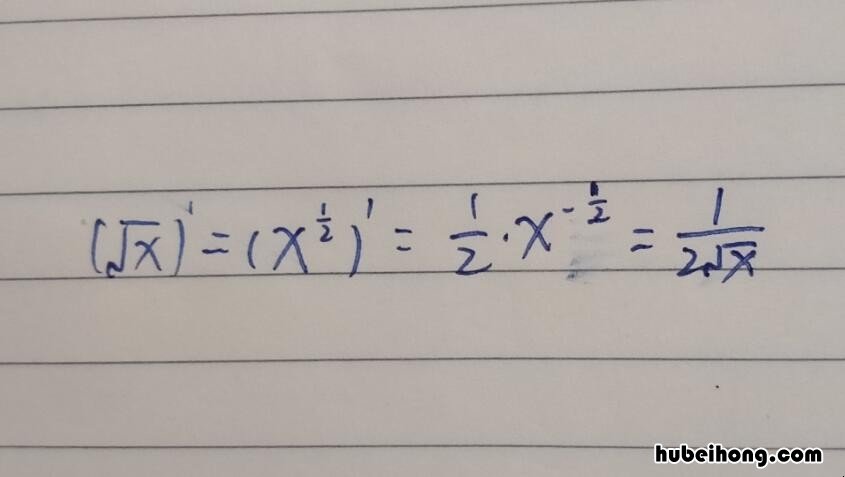 (√x)' = (x^{1/2})' = 1/2 · x^{-1/2} = 1/(2√x)
hubeihong.com